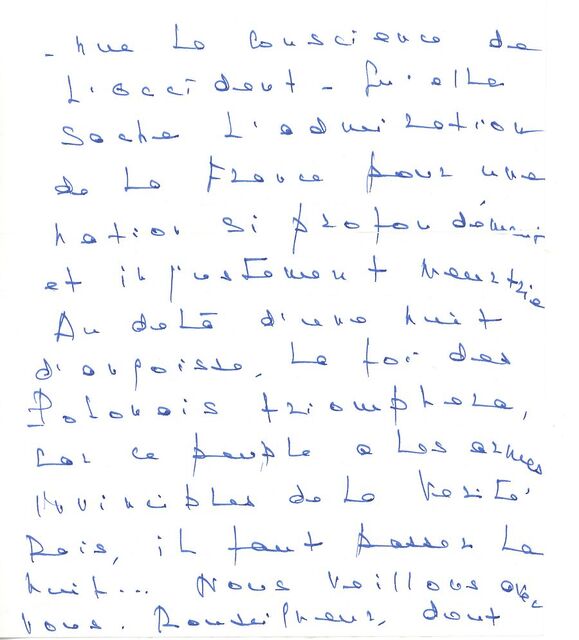 - nue la conscience de
l'occident - qu'elle
sache l'admiration
de la France pour une
nation si profondément
et injustement meurtrie
Au delà d'une nuit
d'angoisse, la foi des
Polonais triomphera,
car ce peuple a les armes
invincibles de la Vérité
Mais, il faut passer la
nuit... Nous veillons avec
vous. Monseigneur, dont